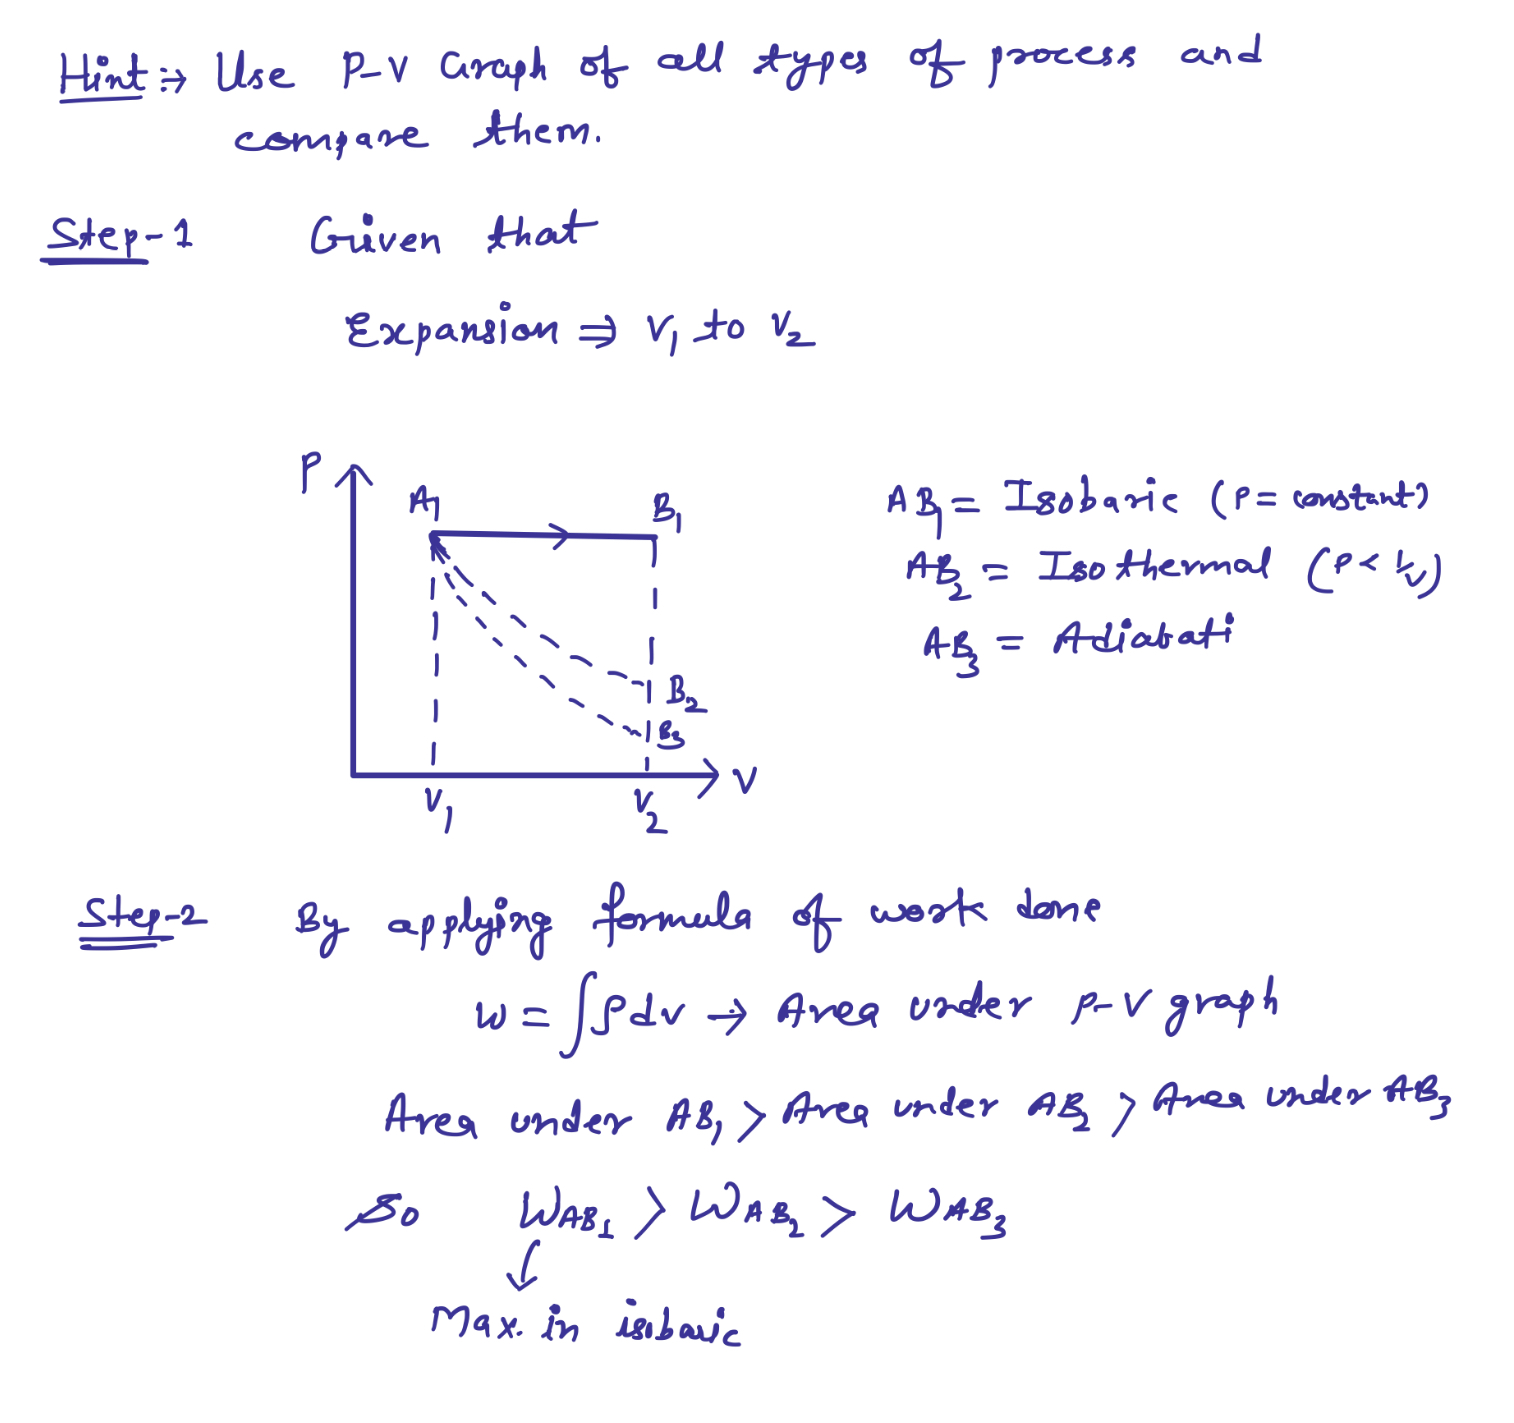 Hint :→ Use P-V Graph of all types of process and
compare them.
Step-1 Given that
Expansion ⇒ V₁ to V₂
P
A B₁
AB₁ = Isobaric (P = constant)
AB₂ = Isothermal (P ∝ 1/V)
AB₃ = Adiabati
B₂
B₃
V
V₁ V₂
Step-2 By applying formula of work done
W = ∫PdV → Area under P-V graph
Area under AB₁ > Area under AB₂ > Area under AB₃
So W_AB₁ > W_AB₂ > W_AB₃
Max. in isobaric